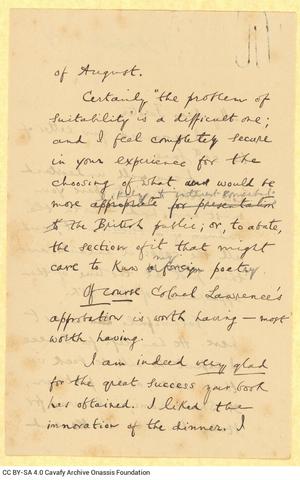 of August.
Certainly "the problem of
suitability" is a difficult one;
and I feel completely secure
in your experience for the
choosing of what and would be
likely to interest
more appropriate for presentation
to the British public; or, to abate,
the section of it that might
my
care to know a foreign poetry
Of course Colonel Lawrence's
approbation is worth having — most
worth having.
I am indeed very glad
for the great success your book
has obtained. I liked the
innovation of the dinner. I
CC BY-SA 4.0 Cavafy Archive Onassis Foundation